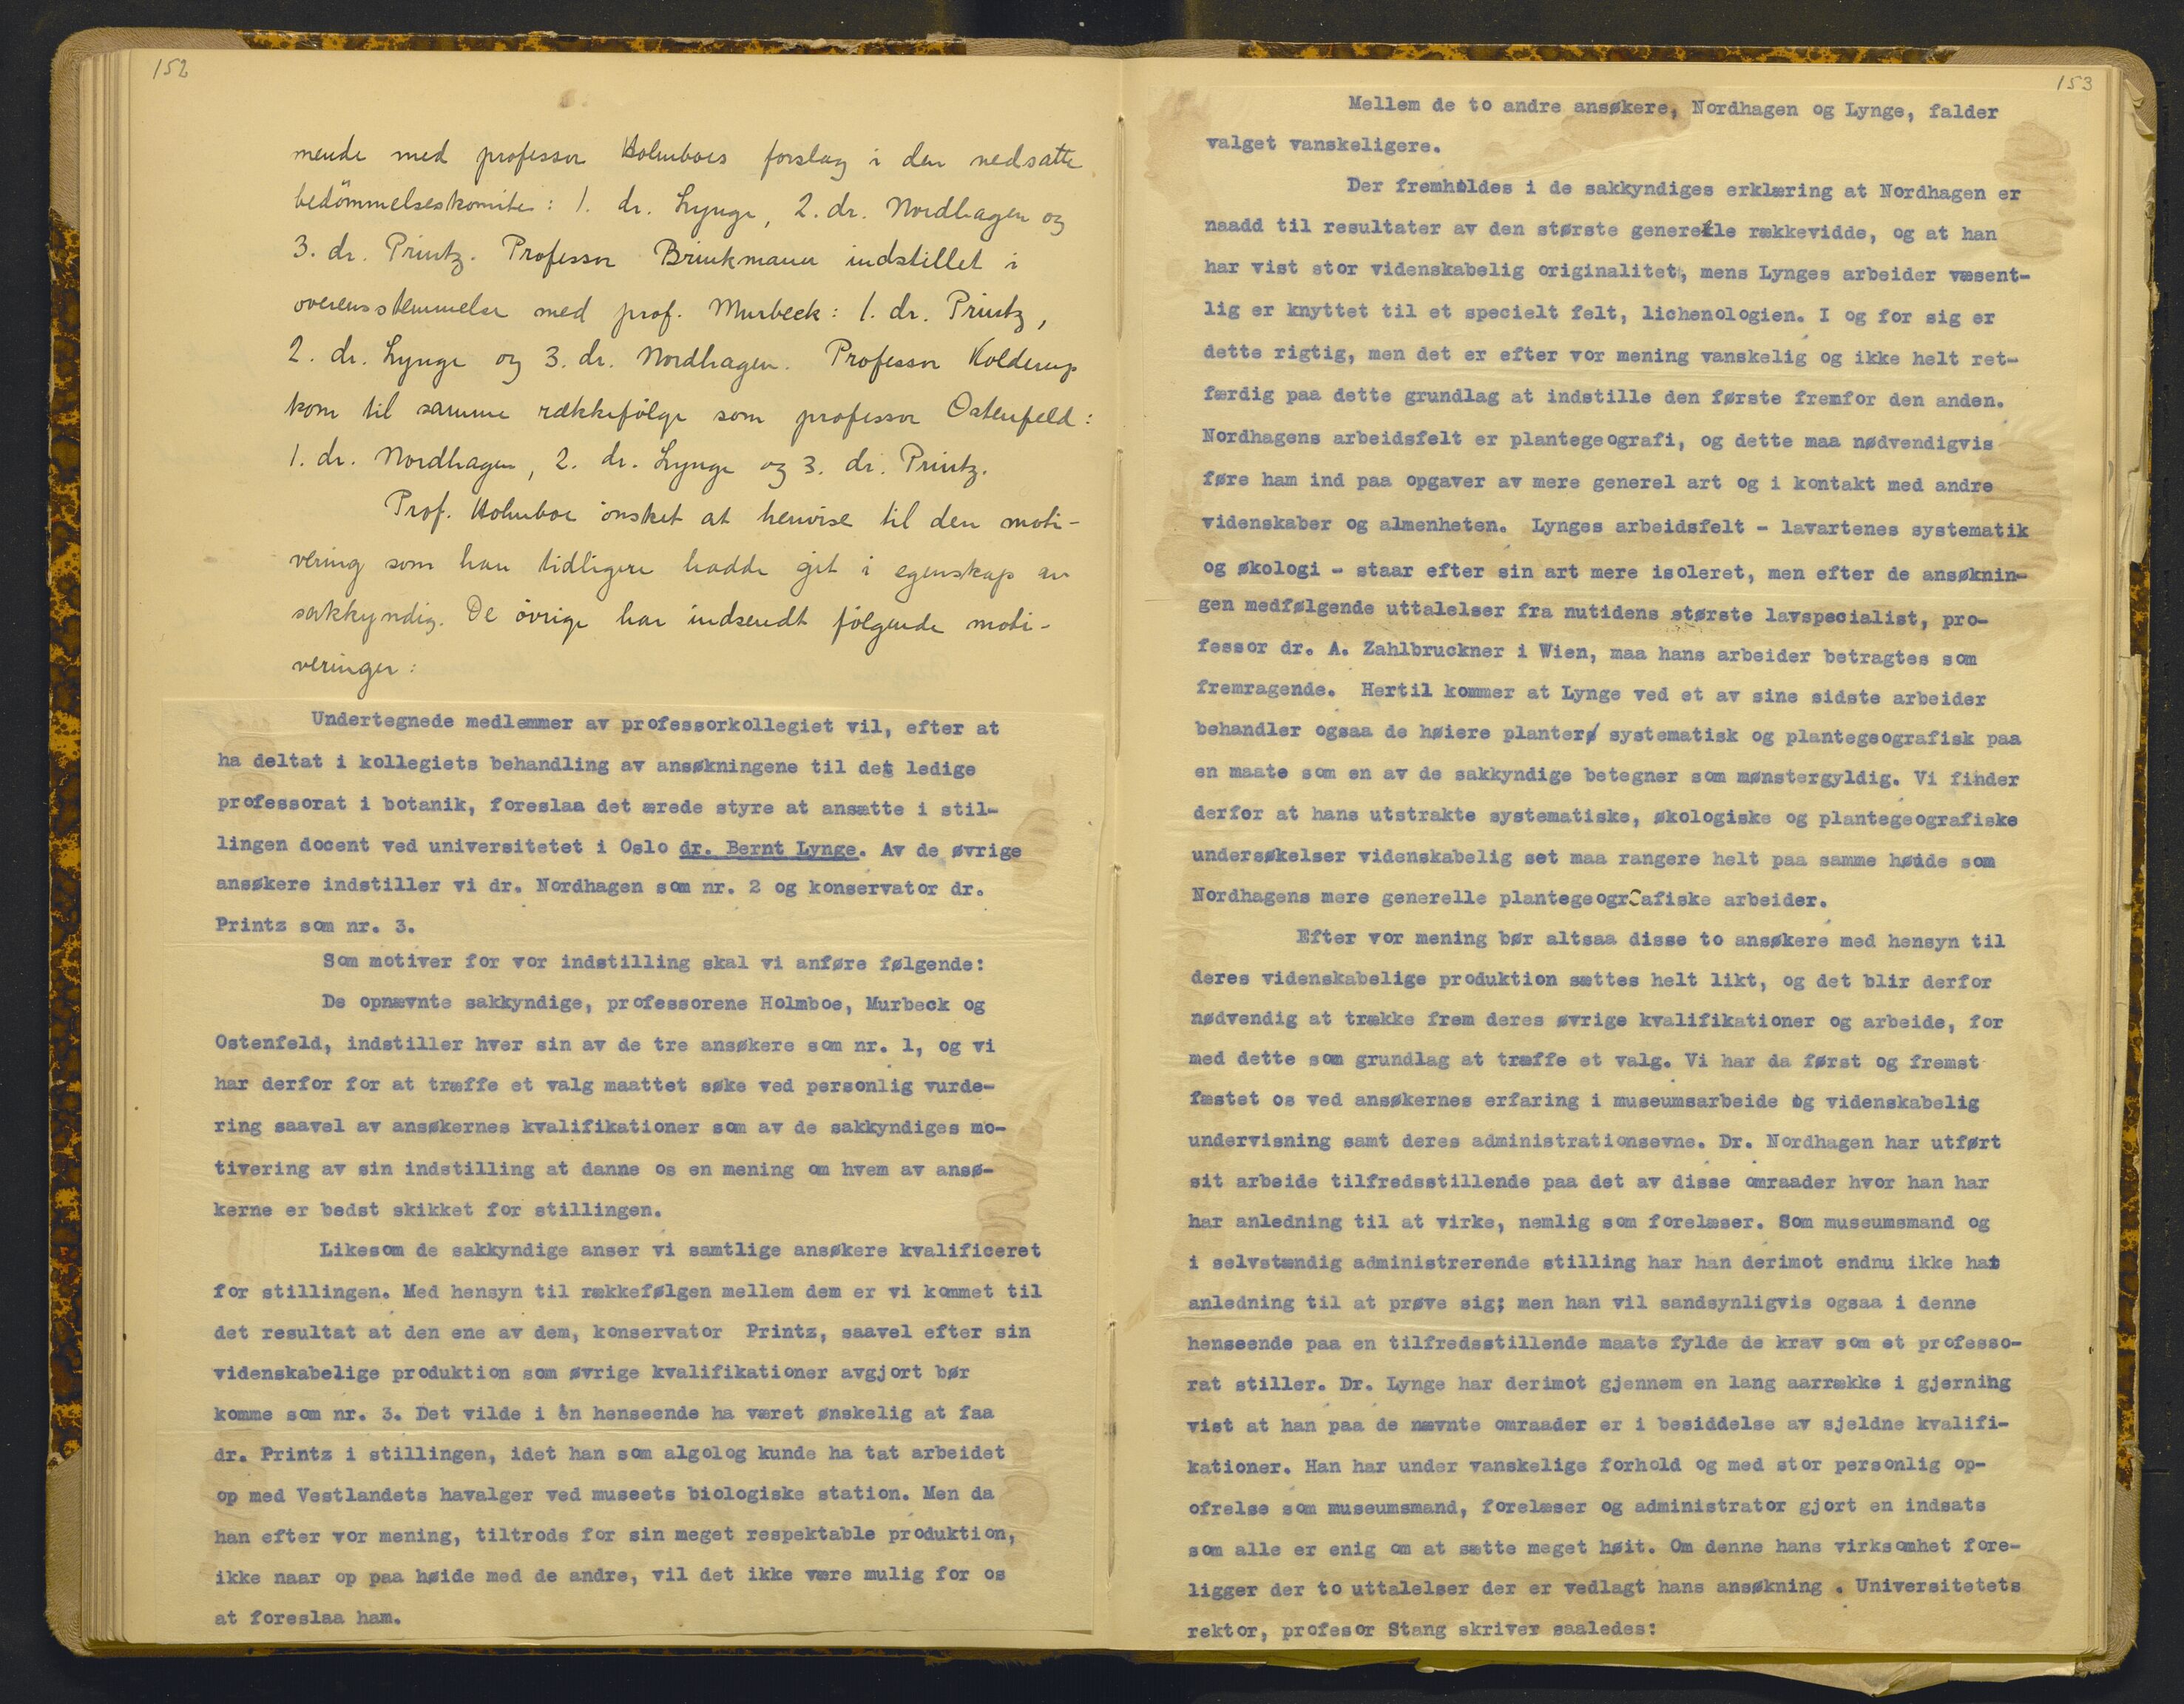 152
mende med professor Holmboes forslag i den nedsatte
bedömmelseskomite: 1. dr. Lynge, 2. dr. Nordhagen og
3. dr. Printz. Professor Brinkmann indstillet i
overensstemmelse med prof. Murbeck: 1. dr. Printz,
2. dr. Lynge og 3. dr. Nordhagen. Professor Kolderup
kom til samme rækkefölge som professor Ostenfeld:
1. dr. Nordhagen, 2. dr. Lynge og 3. dr. Printz.
Prof. Holmboe önsket at henvise til den moti-
vering som han tidligere hadde git i egenskap av
sakkyndig. De övrige har indsendt fölgende moti-
veringer:
Undertegnede medlemmer av professorkollegiet vil, efter at
ha deltat i kollegiets behandling av ansøkningene til det ledige
professorat i botanik, foreslaa det ærede styre at ansætte i stil-
lingen docent ved universitetet i Oslo dr. Bernt Lynge. Av de øvrige
ansøkere indstiller vi dr. Nordhagen som nr. 2 og konservator dr.
Printz som nr. 3.
Som motiver for vor indstilling skal vi anføre følgende:
De opnævnte sakkyndige, professorene Holmboe, Murbeck og
Ostenfeld, indstiller hver sin av de tre ansøkere som nr. 1, og vi
har derfor for at træffe et valg maattet søke ved personlig vurde-
ring saavel av ansøkernes kvalifikationer som av de sakkyndiges mo-
tivering av sin indstilling at danne os en mening om hvem av ansø-
kerne er bedst skikket for stillingen.
Likesom de sakkyndige anser vi samtlige ansøkere kvalificeret
for stillingen. Med hensyn til rækkefølgen mellem dem er vi kommet til
det resultat at den ene av dem, konservator Printz, saavel efter sin
videnskabelige produktion som øvrige kvalifikationer avgjort bør
komme som nr. 3. Det vilde i én henseende ha været ønskelig at faa
dr. Printz i stillingen, idet han som algolog kunde ha tat arbeidet
op med Vestlandets havalger ved museets biologiske station. Men da
han efter vor mening, tiltrods for sin meget respektable produktion,
ikke naar op paa høide med de andre, vil det ikke være mulig for os
at foreslaa ham.
153
Mellem de to andre ansøkere, Nordhagen og Lynge, falder
valget vanskeligere.
Der fremholdes i de sakkyndiges erklæring at Nordhagen er
naadd til resultater av den største generelle rækkevidde, og at han
har vist stor videnskabelig originalitet, mens Lynges arbeider væsent-
lig er knyttet til et specielt felt, lichenologien. I og for sig er
dette rigtig, men det er efter vor mening vanskelig og ikke helt ret-
færdig paa dette grundlag at indstille den første fremfor den anden.
Nordhagens arbeidsfelt er plantegeografi, og dette maa nødvendigvis
føre ham ind paa opgaver av mere generel art og i kontakt med andre
videnskaber og almenheten. Lynges arbeidsfelt - lavartenes systematik
og økologi - staar efter sin art mere isoleret, men efter de ansøknin-
gen medfølgende uttalelser fra nutidens største lavspecialist, pro-
fessor dr. A. Zahlbruckner i Wien, maa hans arbeider betragtes som
fremragende. Hertil kommer at Lynge ved et av sine sidste arbeider
behandler ogsaa de høiere planter systematisk og plantegeografisk paa
en maate som en av de sakkyndige betegner som mønstergyldig. Vi finder
derfor at hans utstrakte systematiske, økologiske og plantegeografiske
undersøkelser videnskabelig set maa rangere helt paa samme høide som
Nordhagens mere generelle plantegeografiske arbeider.
Efter vor mening bør altsaa disse to ansøkere med hensyn til
deres videnskabelige produktion sættes helt likt, og det blir derfor
nødvendig at trække frem deres øvrige kvalifikationer og arbeide, for
med dette som grundlag at træffe et valg. Vi har da først og fremst
fæstet os ved ansøkernes erfaring i museumsarbeide og videnskabelig
undervisning samt deres administrationsevne. Dr. Nordhagen har utført
sit arbeide tilfredsstillende paa det av disse omraader hvor han har
har anledning til at virke, nemlig som forelæser. Som museumsmand og
i selvstændig administrerende stilling har han derimot endnu ikke hat
anledning til at prøve sig; men han vil sandsynligvis ogsaa i denne
henseende paa en tilfredsstillende maate fylde de krav som et professo-
rat stiller. Dr. Lynge har derimot gjennem en lang aarrække i gjerning
vist at han paa de nævnte omraader er i besiddelse av sjeldne kvalifi-
kationer. Han har under vanskelige forhold og med stor personlig op-
ofrelse som museumsmand, forelæser og administrator gjort en indsats
som alle er enig om at sætte meget høit. Om denne hans virksomhet fore-
ligger der to uttalelser der er vedlagt hans ansøkning . Universitetets
rektor, profesor Stang skriver saaledes: